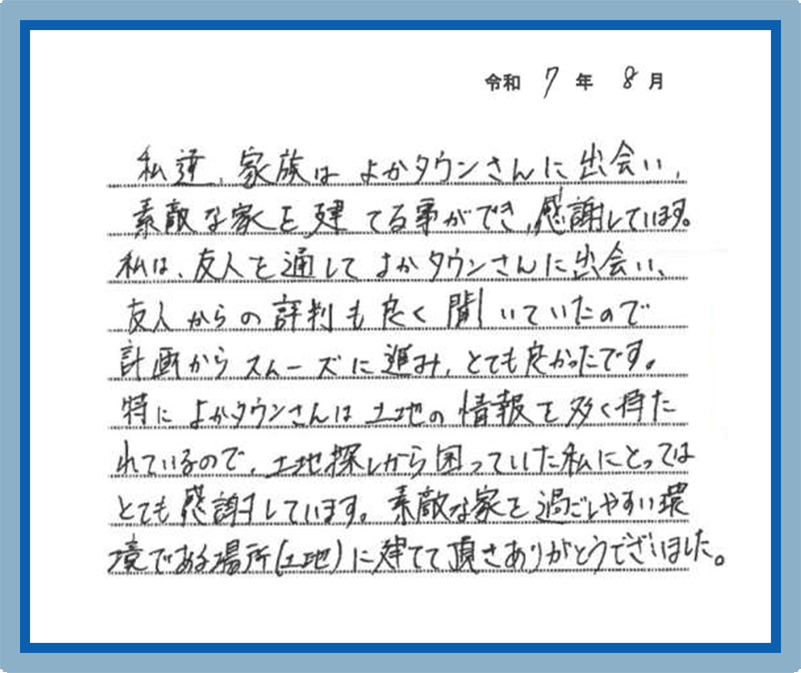 令和 7 年 8 月
私達、家族は よかタウンさんに出会い、
素敵な家を建てる事ができ、感謝しています。
私は、友人を通して よかタウンさんに出会い、
友人からの評判も良く聞いていたので
計画からスムーズに進み、とても良かったです。
特によかタウンさんは土地の情報を多く持た
れているので、土地探しから困っていた私にとっては
とても感謝しています。素敵な家を過ごしやすい環
境である場所(土地)に建てて頂きありがとうございました。